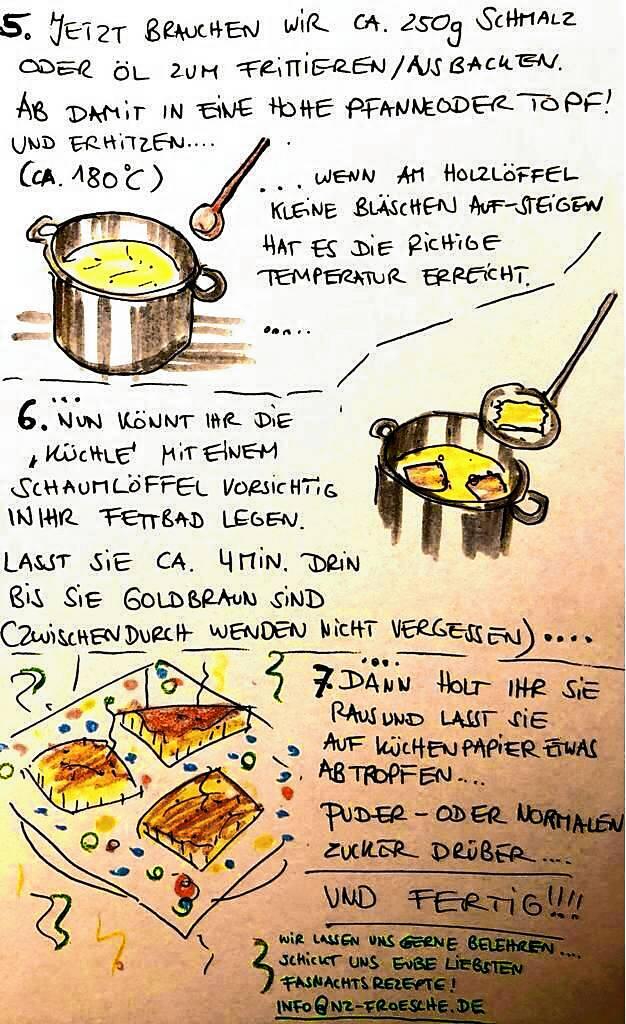 5. JETZT BRAUCHEN WIR CA. 250g SCHMALZ
ODER ÖL ZUM FRITTIEREN/AUSBACKEN.
AB DAMIT IN EINE HOHE PFANNE ODER TOPF!
UND ERHITZEN....
(CA. 180°C)
... WENN AM HOLZLÖFFEL
KLEINE BLÄSCHEN AUF-STEIGEN
HAT ES DIE RICHIGE
TEMPERATUR ERREICHT.
.....
...
6. NUN KÖNNT IHR DIE
‚KÜCHLE' MIT EINEM
SCHAUMLÖFFEL VORSICHTIG
IN IHR FETTBAD LEGEN.
LASST SIE CA. 4 MIN. DRIN
BIS SIE GOLDBRAUN SIND
(ZWISCHENDURCH WENDEN NICHT VERGESSEN)....
....
7. DANN HOLT IHR SIE
RAUS UND LASST SIE
AUF KÜCHENPAPIER ETWAS
ABTROPFEN....
PUDER- ODER NORMALEN
ZUCKER DRÜBER....
UND FERTIG!!!!
WIR LASSEN UNS GERNE BELEHREN....
SCHICKT UNS EURE LIEBSTEN
FASNACHTSREZEPTE!
INFO@NZ-FROESCHE.DE